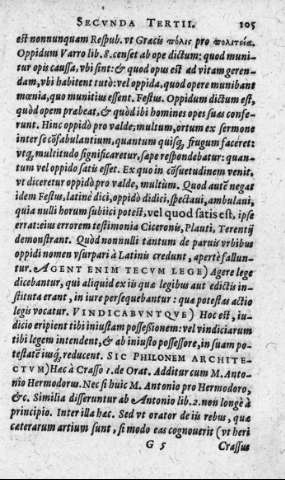 SECVNDA TERTII. 105
est nonnunquam Respub. vt Græcis πόλις pro πολιτεία.
Oppidum Varro lib. 8. censet ab ope dictum: quod muni-
tur opis caussa, vbi sint: & quod opus est ad vitam geren-
dam, vbi habitent tutò: vel oppida, quod opere munibant
mœnia, quo munitius essent. Festus. Oppidum dictum est,
quòd opem præbeat, & quòd ibi homines opes suas confe-
runt. Hinc oppidò pro valde, multum, ortum ex sermono
inter se cōfabulantium, quantum quisq́, frugum faceret:
vtq́, multitudo significaretur, sæpe respondebatur: quan-
tum vel oppido satis esset. Ex quo in cōsuetudinem venit,
vt diceretur oppidò pro valde, multùm. Quòd autē negat
idem Festus, latinè dici, oppidò didici, spectaui, ambulaui,
quia nulli horum subiici potest, vel quod satis est, ipse
errat: eius errorem testimonia Ciceronis, Plauti, Terentij
demonstrant. Quòd nonnulli tantum de paruis vrbibus
oppidi nomen vsurpari à Latinis credunt, apertè fallun-
tur. AGENT ENIM TECVM LEGE) Agere lege
dicebantur, qui aliquid ex iis quæ legibus aut edictis in-
stituta erant, in iure persequebantur: quæ potestas actio
legis vocatur. VINDICABVNTQVE) Hoc est, iu-
dicio eripient tibi iniustam possessionem: vel vindiciarum
tibi legem intendent, & ab iniusto possessore, in suam po-
testatē iusq́, reducent. SIC PHILONEM ARCHITE-
CTVM) Hæc à Crasso 1. de Orat. Additur cum M. Anto-
nio Hermodorus. Nec si huic M. Antonio pro Hermodoro,
&c. Similia disseruntur ab Antonio lib. 2. non longè à
principio. Inter illa hæc. Sed vt orator de iis rebus, quæ
cæterarum artium sunt, si modo eas cognouerit (vt heri
G 5 Crassus